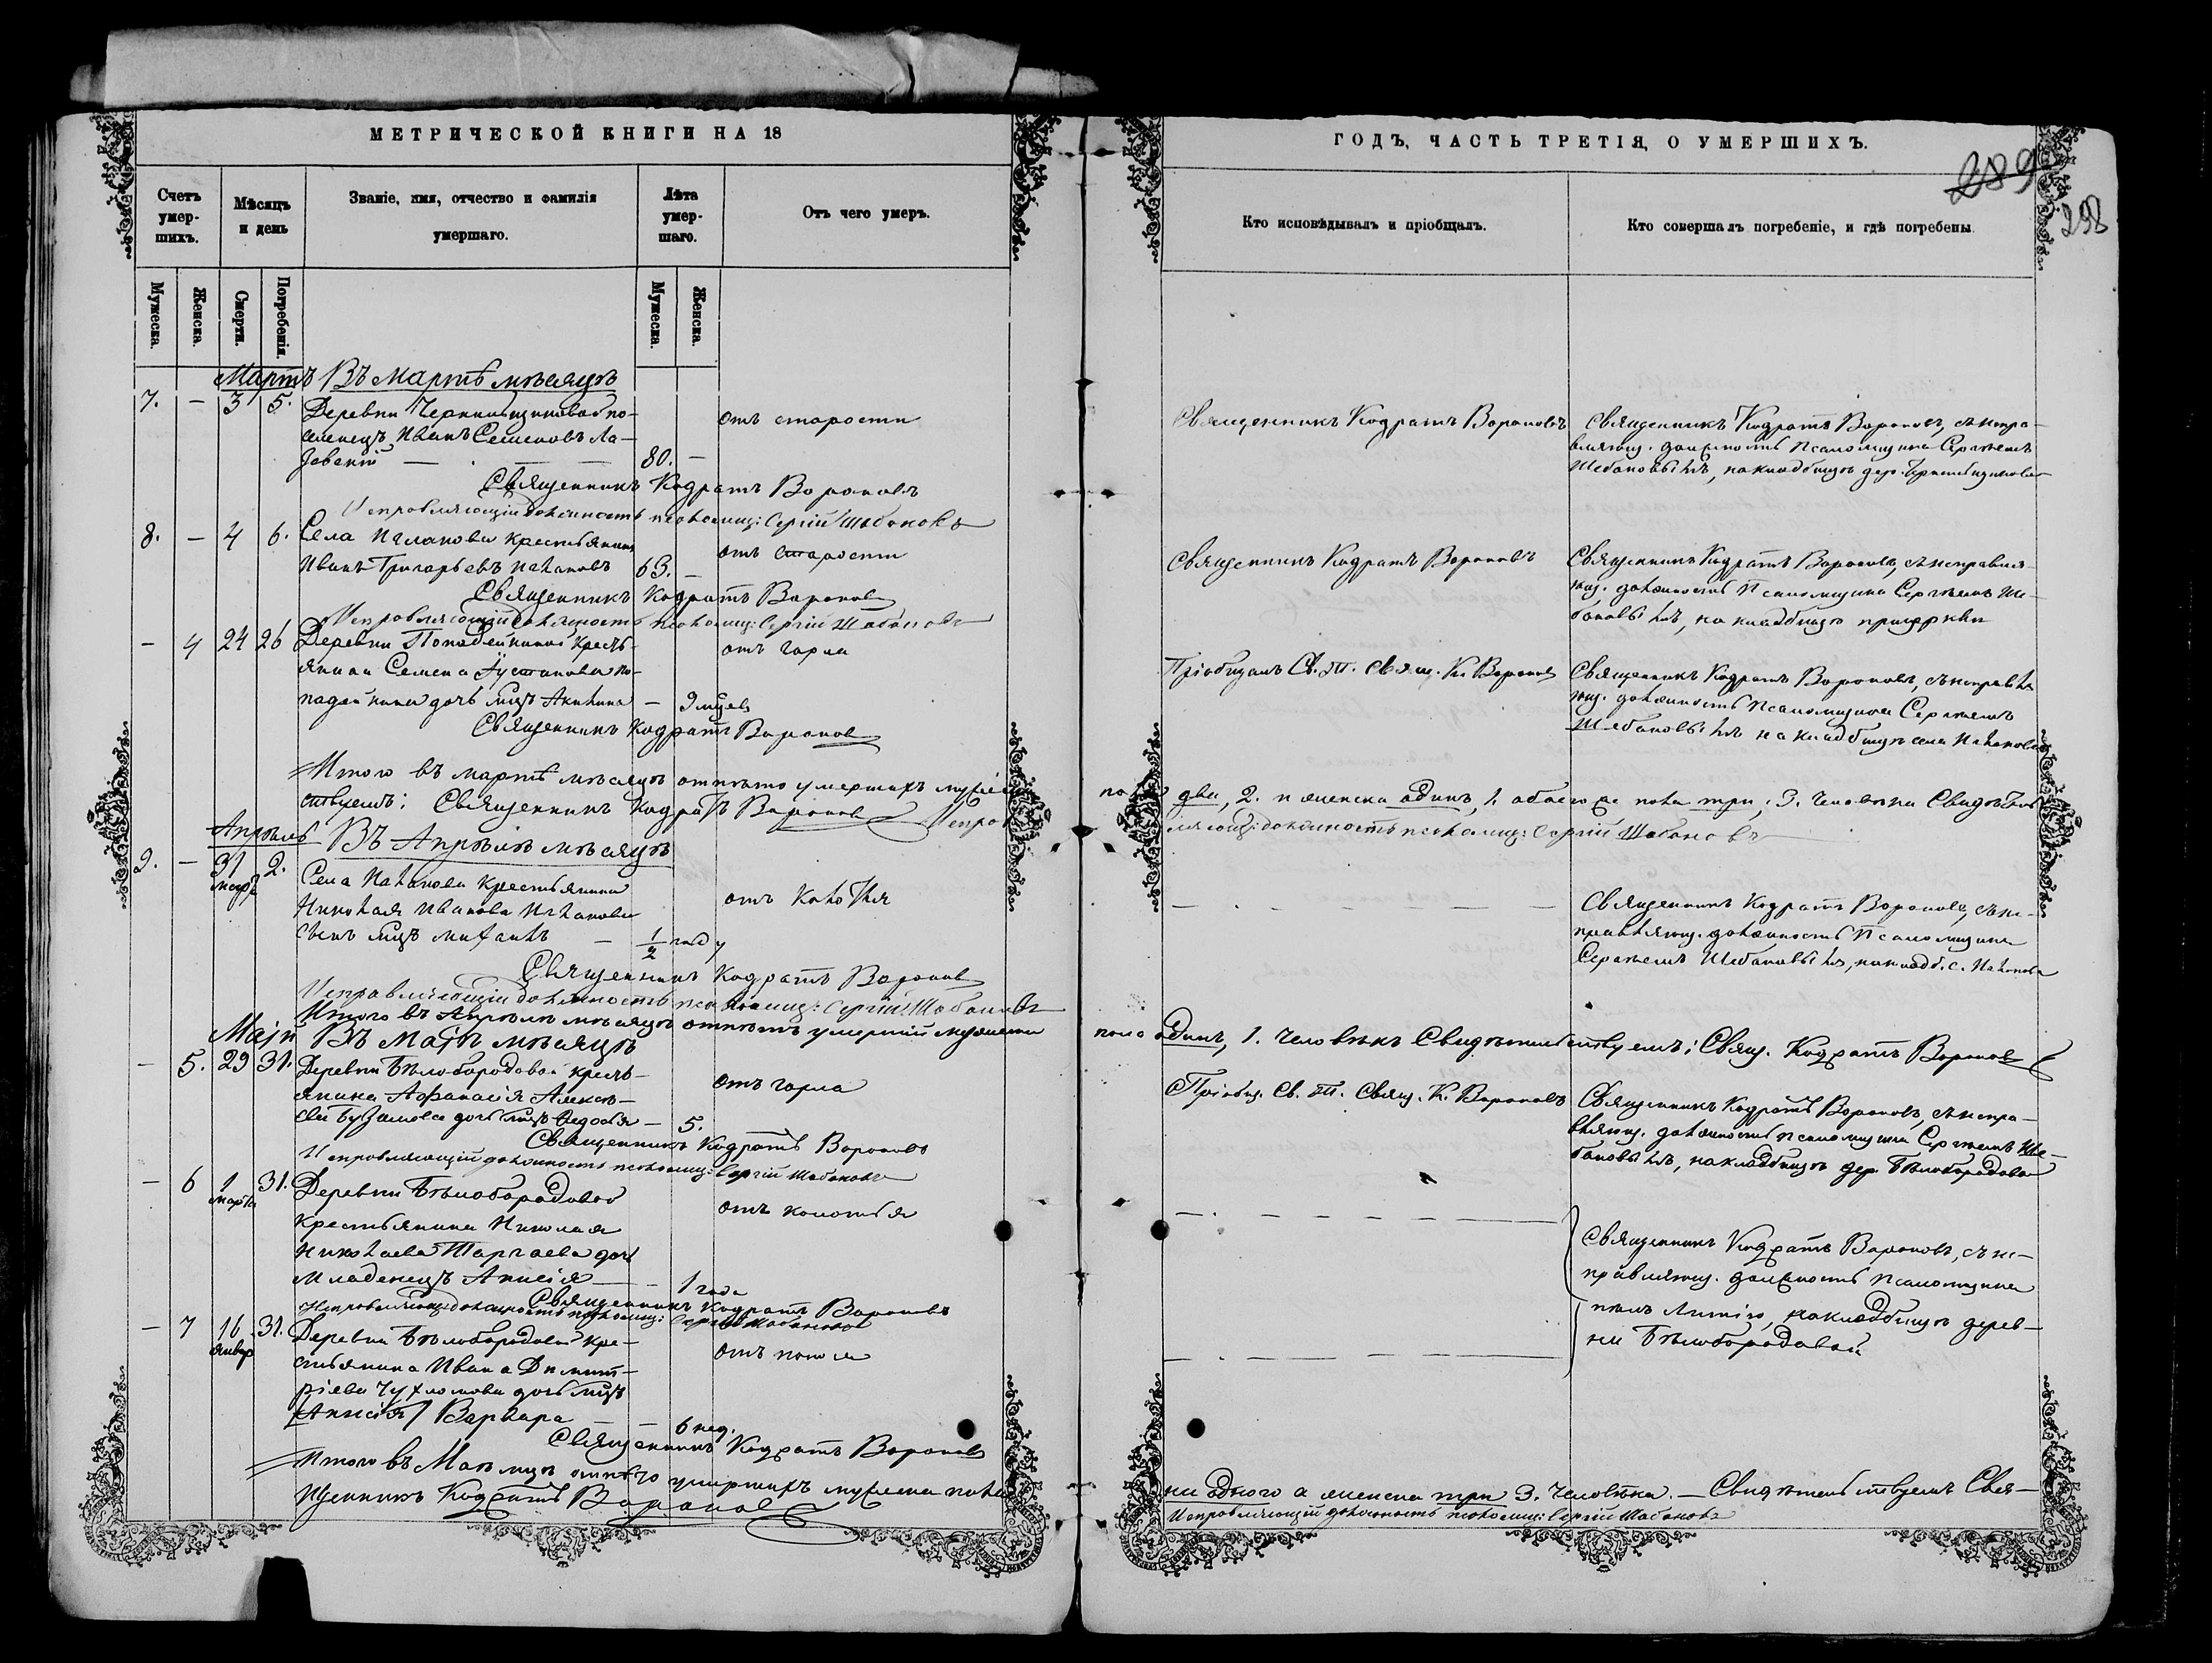 МЕТРИЧЕСКОЙ КНИГИ НА 18
Счетъ умер-шихъ.
Мѣсяцъ и день
Званіе, имя, отчество и фамилія умершаго.
Лѣта умер-шаго.
Отъ чего умеръ.
Мужеска.
Женска.
Смерти.
Погребенія.
Мужеска.
Женска.
Мартъ Въ Мартѣ мѣсяцѣ
7. — 3 5.
Деревни по-
селенецъ Иванъ Семеновъ Ла-
80. —
отъ старости
Священникъ Кодратъ Вороновъ
Исправляющій должность псаломщ: Сергій Шабановъ
8. — 4 6. Села крестьянинъ
Иванъ Григорьевъ 63. —
отъ старости
Священникъ Кодратъ Вороновъ
Исправляющій должность псаломщ: Сергій Шабановъ
— 4 24 26 Деревни кресть-
янина Семена
дочь млц Акилина — 9 мцевъ
отъ горла
Священникъ Кодратъ Вороновъ
Итого въ мартѣ мѣсяцѣ отпѣто умершихъ
ствуемъ: Священникъ Кодратъ Вороновъ
Апрѣль Въ Апрѣлѣ мѣсяцѣ
9. — 31 марта 2. Села крестьянина
Николая Иванова
сынъ млцъ — 1/2 году
Священникъ Кодратъ Вороновъ
Исправляющій должность псаломщ: Сергій Шабановъ
Итого въ Апрѣлѣ мѣсяцѣ отпѣтъ умершій мужеска
Маій Въ Маіѣ мѣсяцѣ
— 5. 29 31. Деревни Бѣлобородовой кресть-
янина Афанасія Алексѣ-
дочь млцъ Ѳедосья — 5.
отъ горла
Священникъ Кодратъ Вороновъ
Исправляющій должность псаломщ: Сергій Шабановъ
— 6 1 марта 31. Деревни Бѣлобородовой
крестьянина Николая
Николаева дочь
младенецъ Анисія — 1 года
отъ колотья
Священникъ Кодратъ Вороновъ
Исправляющ: должность псаломщ: Сергій Шабановъ
— 7 16 январ 31. Деревни Бѣлобородовой кре-
стьянина Ивана Димит-
ріева дочь млцъ
[Анисія] Варвара — — 6 нед.
Священникъ Кодратъ Вороновъ
Итого въ Маѣ мцѣ отпѣто умершихъ мужеска пола
щенникъ Кодратъ Вороновъ
ГОДЪ, ЧАСТЬ ТРЕТІЯ, О УМЕРШИХЪ.
289
298
Кто исповѣдывалъ и пріобщалъ.
Кто совершалъ погребеніе, и гдѣ погребены
Священникъ Кодратъ Вороновъ
Священникъ Кодратъ Вороновъ, съ испра-
вляющ. должность псаломщика Сергѣемъ
Шабановымъ, на кладбищѣ дер.
Священникъ Кодратъ Вороновъ
Священникъ Кодратъ Вороновъ, съ исправля-
ющ. должность псаломщика Сергѣемъ Ша-
бановымъ, на кладбищѣ
Пріобщалъ Св. Т. Свящ. К. Вороновъ
Священникъ Кодратъ Вороновъ, съ исправля
ющ. должность псаломщика Сергѣемъ
Шабановымъ на кладбищѣ села
два, 2. и женска одинъ, 1. обоего же пола три, 3. человѣка
ляющ: должность псаломщ: Сергій Шабановъ
Священникъ Кодратъ Вороновъ, съ ис-
правляющ. должность псаломщика
Сергѣемъ Шабановымъ, на кладб. с.
пола одинъ, 1. человѣкъ Свидѣтельствуемъ: Свящ. Кодратъ Вороновъ
Пріобщ. Св. Т. Свящ. К. Вороновъ
Священникъ Кодратъ Вороновъ, съ испра-
вляющ. должность псаломщика Сергѣемъ Ша-
бановымъ, на кладбищѣ дер. Бѣлобородовой
Священникъ Кодратъ Вороновъ, съ ис-
правляющ. должность псаломщика
пѣлъ литію, на кладбищѣ дерев-
ни Бѣлобородовой
ни одного а женска три 3. человѣка. — Свидѣтельствуемъ Свя-
Исправляющій должность псаломщ: Сергій Шабановъ